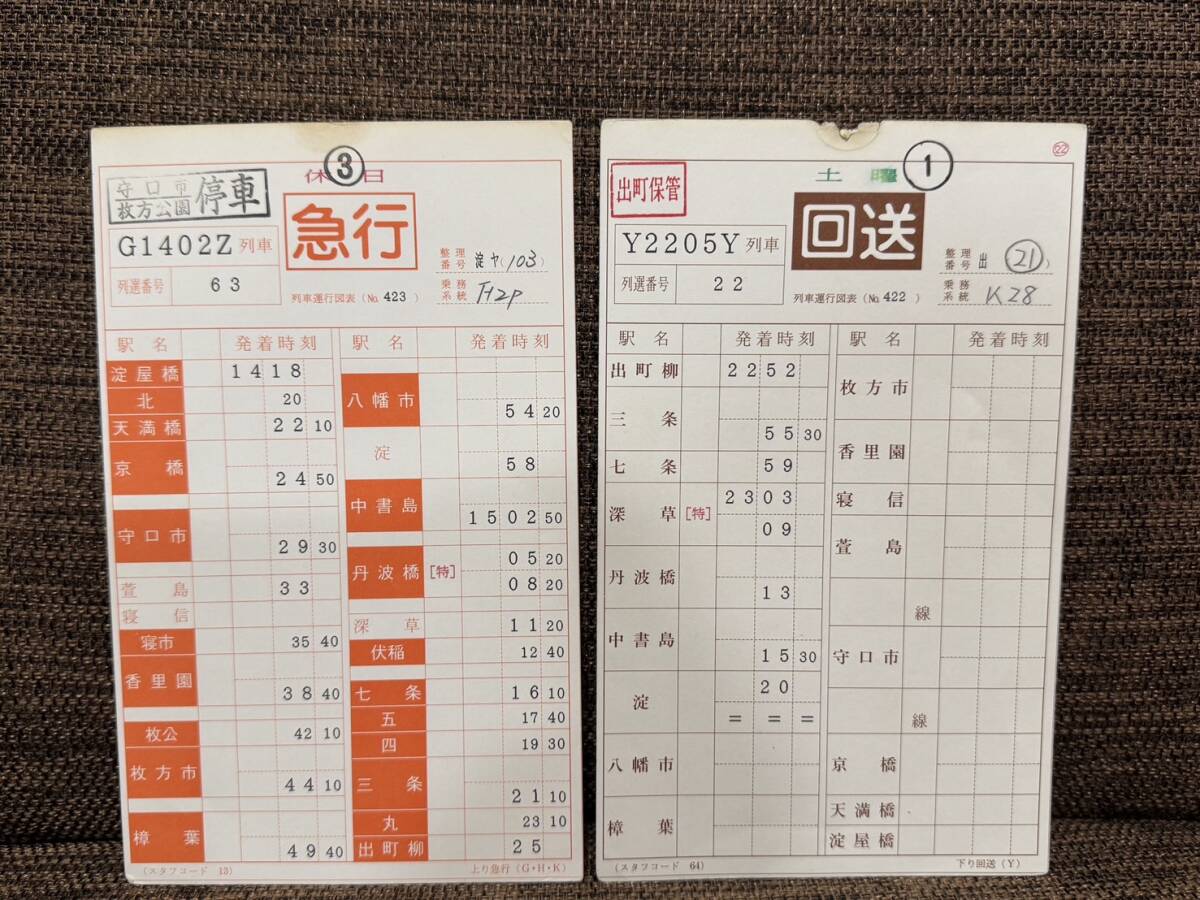 休日
③
守口市
枚方公園
停車
急行
G1402Z 列車
整理番号 淀ヤ(103)
列選番号 63
列車運行図表 (No. 423)
乗務系統
駅名 発着時刻
淀屋橋 1418
北 20
天満橋 22 10
京橋 24 50
守口市 29 30
萱島 33
寝信
寝市 35 40
香里園 38 40
枚公 42 10
枚方市 44 10
樟葉 49 40
駅名 発着時刻
八幡市 54 20
淀 58
中書島 1502 50
丹波橋 [特] 05 20
08 20
深草 11 20
伏稲 12 40
七条 16 10
五 17 40
四 19 30
三条 21 10
丸 23 10
出町柳 25
(スタフコード 13)
上り急行 (G・H・K)
㉒
土曜
①
出町保管
回送
Y2205Y 列車
整理番号 出 (21)
列選番号 22
列車運行図表 (No. 422)
乗務系統 K28
駅名 発着時刻
出町柳 2252
三条 55 30
七条 59
深草 [特] 2303
09
丹波橋 13
中書島 15 30
淀 20
= = =
八幡市
樟葉
駅名 発着時刻
枚方市
香里園
寝信
萱島
線
守口市
線
京橋
天満橋
淀屋橋
(スタフコード 64)
下り回送 (Y)